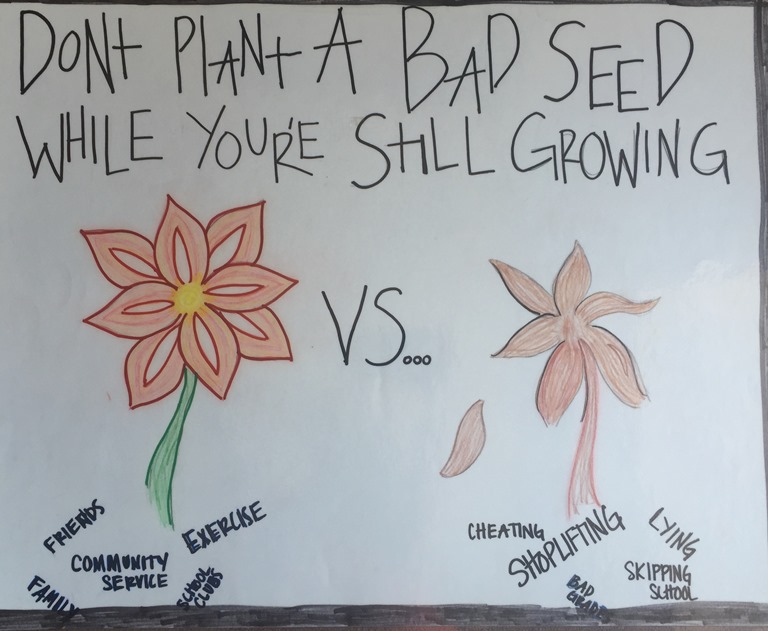 DONT PLANT A BAD SEED
WHILE YOU'RE STILL GROWING
VS...
FRIENDS
EXERCISE
COMMUNITY
SERVICE
FAMILY
SCHOOL
CLUBS
CHEATING
SHOPLIFTING
LYING
SKIPPING
SCHOOL
BAD
GRADES